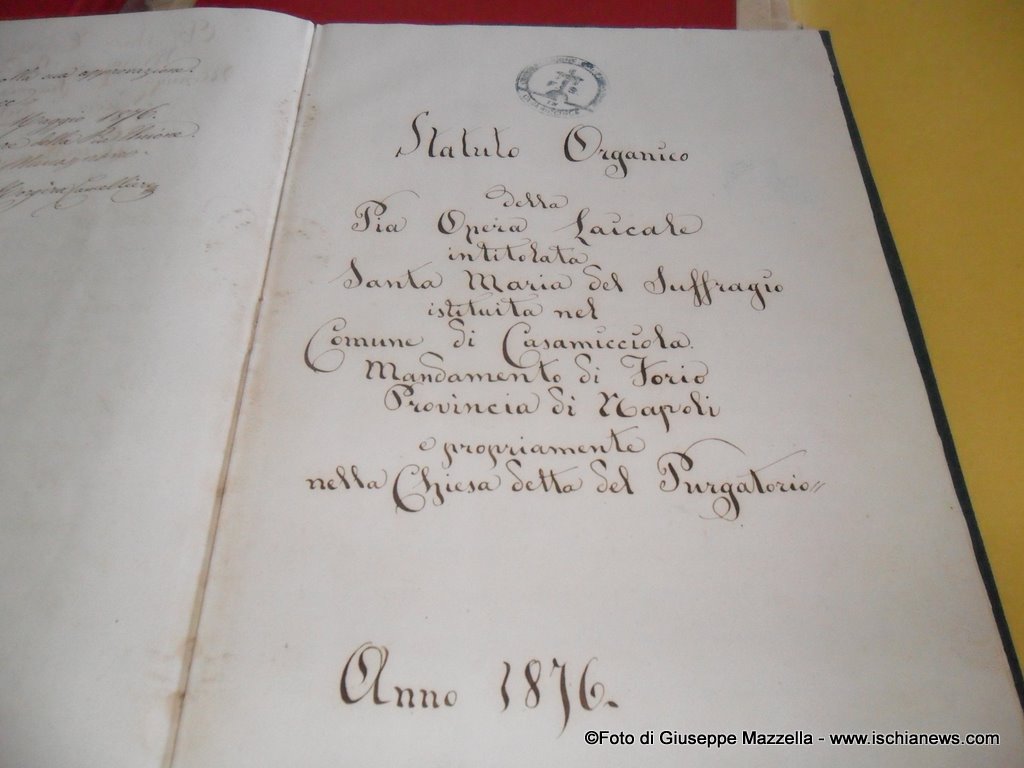 alla sua approvazione.
Maggio 1876.
Statuto Organico
della
Pia Opera Laicale
intitolata
Santa Maria del Suffragio
istituita nel
Comune di Casamicciola.
Mandamento di Forio
Provincia di Napoli
e propriamente
nella Chiesa detta del Purgatorio=
Anno 1876.
©Foto di Giuseppe Mazzella - www.ischianews.com